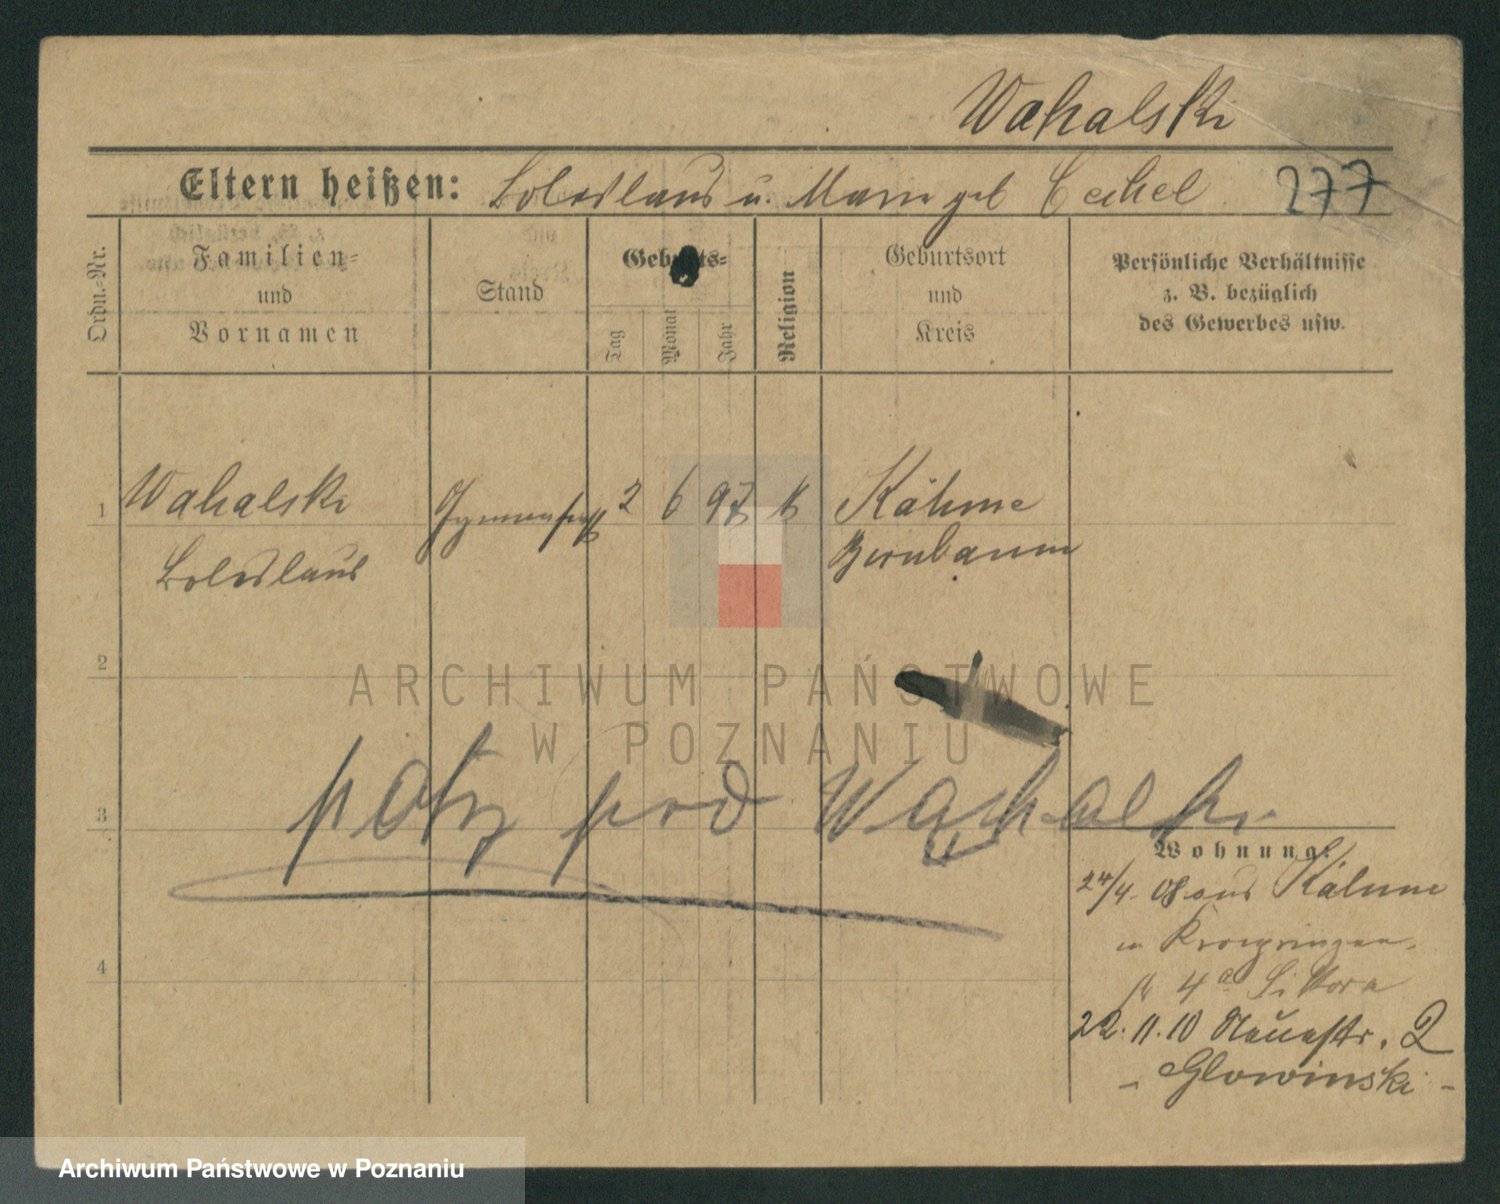 Wahalski
Eltern heißen: Boleslaus u. Marie geb Cechel
277
Ordn.-Nr.
Familien-
und
Vornamen
Stand
Geburts-
Tag
Monat
Jahr
Religion
Geburtsort
und
Kreis
Persönliche Verhältnisse
z. B. bezüglich
des Gewerbes usw.
1 Wahalski 2 6 97 k Kähme
Boleslaus Birnbaum
2
ARCHIWUM PAŃSTWOWE
W POZNANIU
patrz pod Wąchalski
3
Wohnung:
24/4. 08 aus Kähme
4a
4
22.11.10 Neuestr. 2
- Glowinski -
Archiwum Państwowe w Poznaniu